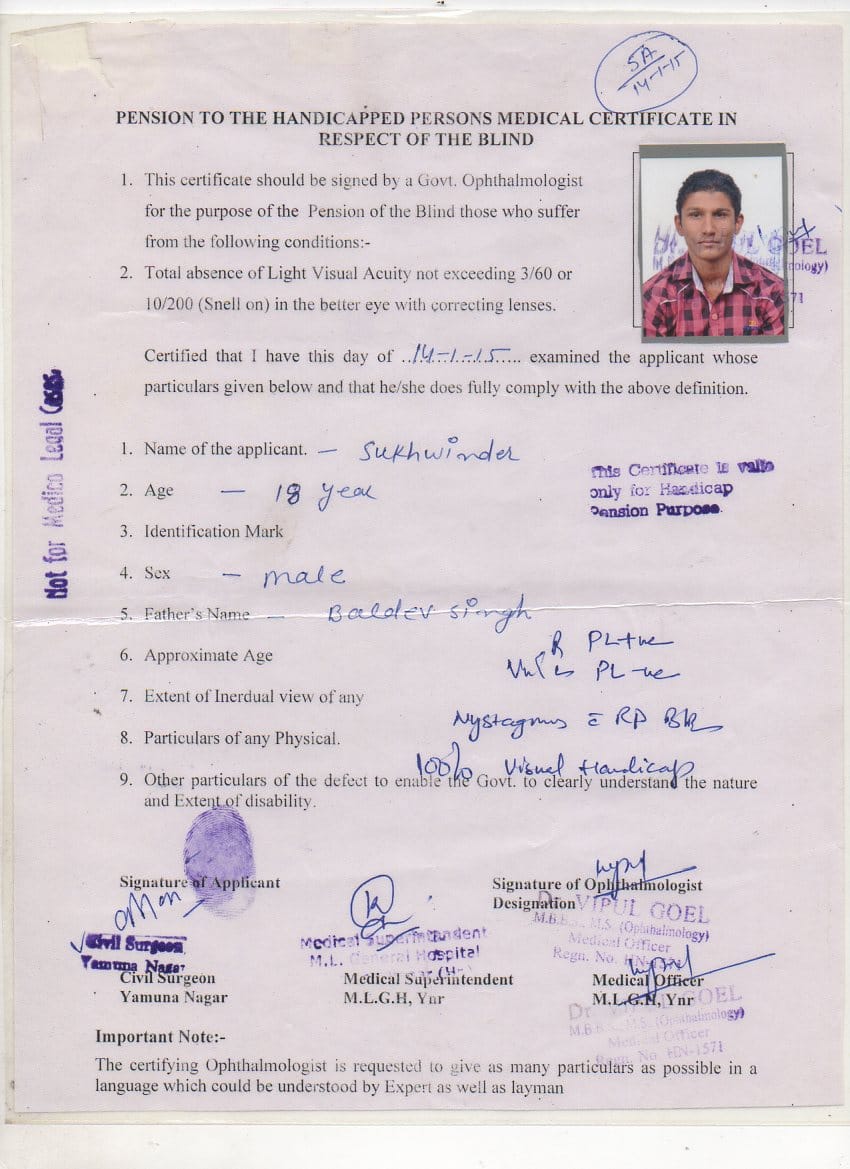 SA
14-1-15
PENSION TO THE HANDICAPPED PERSONS MEDICAL CERTIFICATE IN
RESPECT OF THE BLIND
1. This certificate should be signed by a Govt. Ophthalmologist
for the purpose of the Pension of the Blind those who suffer
from the following conditions:-
2. Total absence of Light Visual Acuity not exceeding 3/60 or
10/200 (Snell on) in the better eye with correcting lenses.
GOEL
Certified that I have this day of ..14-1-15..... examined the applicant whose
particulars given below and that he/she does fully comply with the above definition.
Not for Medico Legal Cases.
1. Name of the applicant. — Sukhwinder
This Certificate is valid
only for Handicap
Pension Purpose.
2. Age — 18 year
3. Identification Mark
4. Sex — male
5. Father's Name — Baldev Singh
6. Approximate Age
R PL+ve
PL-ve
7. Extent of Inerdual view of any
Nystagmus c̄ RP
8. Particulars of any Physical.
100% Visual Handicap
9. Other particulars of the defect to enable the Govt. to clearly understand the nature
and Extent of disability.
Signature of Applicant
Signature of Ophthalmologist
Designation
Dr. VIPUL GOEL
M.B.B.S., M.S. (Ophthalmology)
Medical Officer
Regn. No. HN-1571
Civil Surgeon
Yamuna Nagar
Medical Superintendent
M.L. General Hospital
Civil Surgeon
Yamuna Nagar
Medical Superintendent
M.L.G.H, Ynr
Medical Officer
M.L.G.H, Ynr
Dr. VIPUL GOEL
M.B.B.S., M.S. (Ophthalmology)
Medical Officer
Regn. No. HN-1571
Important Note:-
The certifying Ophthalmologist is requested to give as many particulars as possible in a
language which could be understood by Expert as well as layman